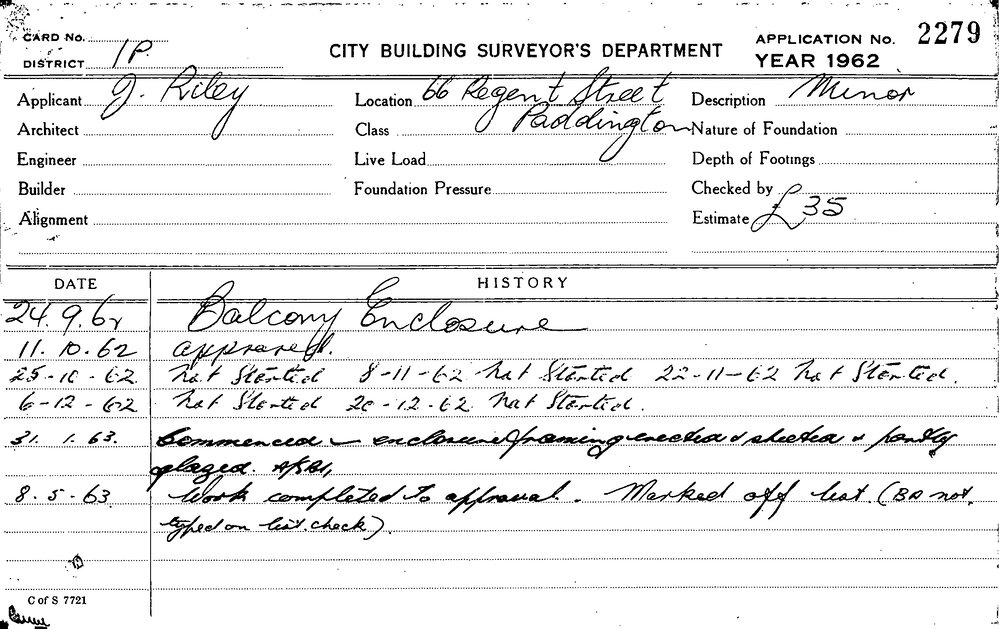 CARD No.
DISTRICT 1P.
CITY BUILDING SURVEYOR'S DEPARTMENT
APPLICATION No. 2279
YEAR 1962
Applicant J. Riley
Location 66 Regent Street
Paddington
Description Minor
Architect
Class
Nature of Foundation
Engineer
Live Load
Depth of Footings
Builder
Foundation Pressure
Checked by
Alignment
Estimate £35
DATE HISTORY
24.9.62 Balcony Enclosure
11.10.62 approved.
25-10-62 Not Started 8-11-62 Not Started 22-11-62 Not Started.
6-12-62 Not Started 20-12-62 Not Started.
31.1.63. Commenced - enclosure framing erected & sheeted & partly
glazed.
8.5.63 Work completed to approval. Marked off list. (BA not
typed on list. check).
C of S 7721